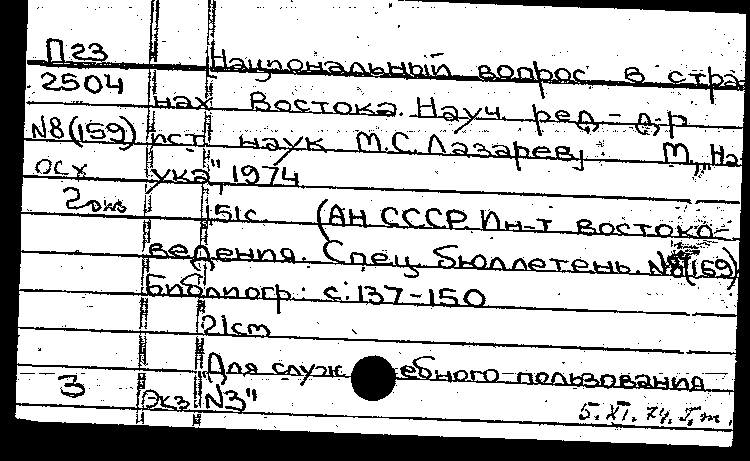 П23 Национальный вопрос в стра-
2504 нах Востока. Науч. ред. - д-р
N8(159) ист. наук М.С. Лазарев. М., „На
осх ука", 1974
2 экз 151с. (АН СССР. Ин-т востоко-
ведения. Спец. бюллетень. N8(159)
Библиогр.: с. 137-150
21см
"Для служебного пользования
3 Экз N3"
5.XI.74.